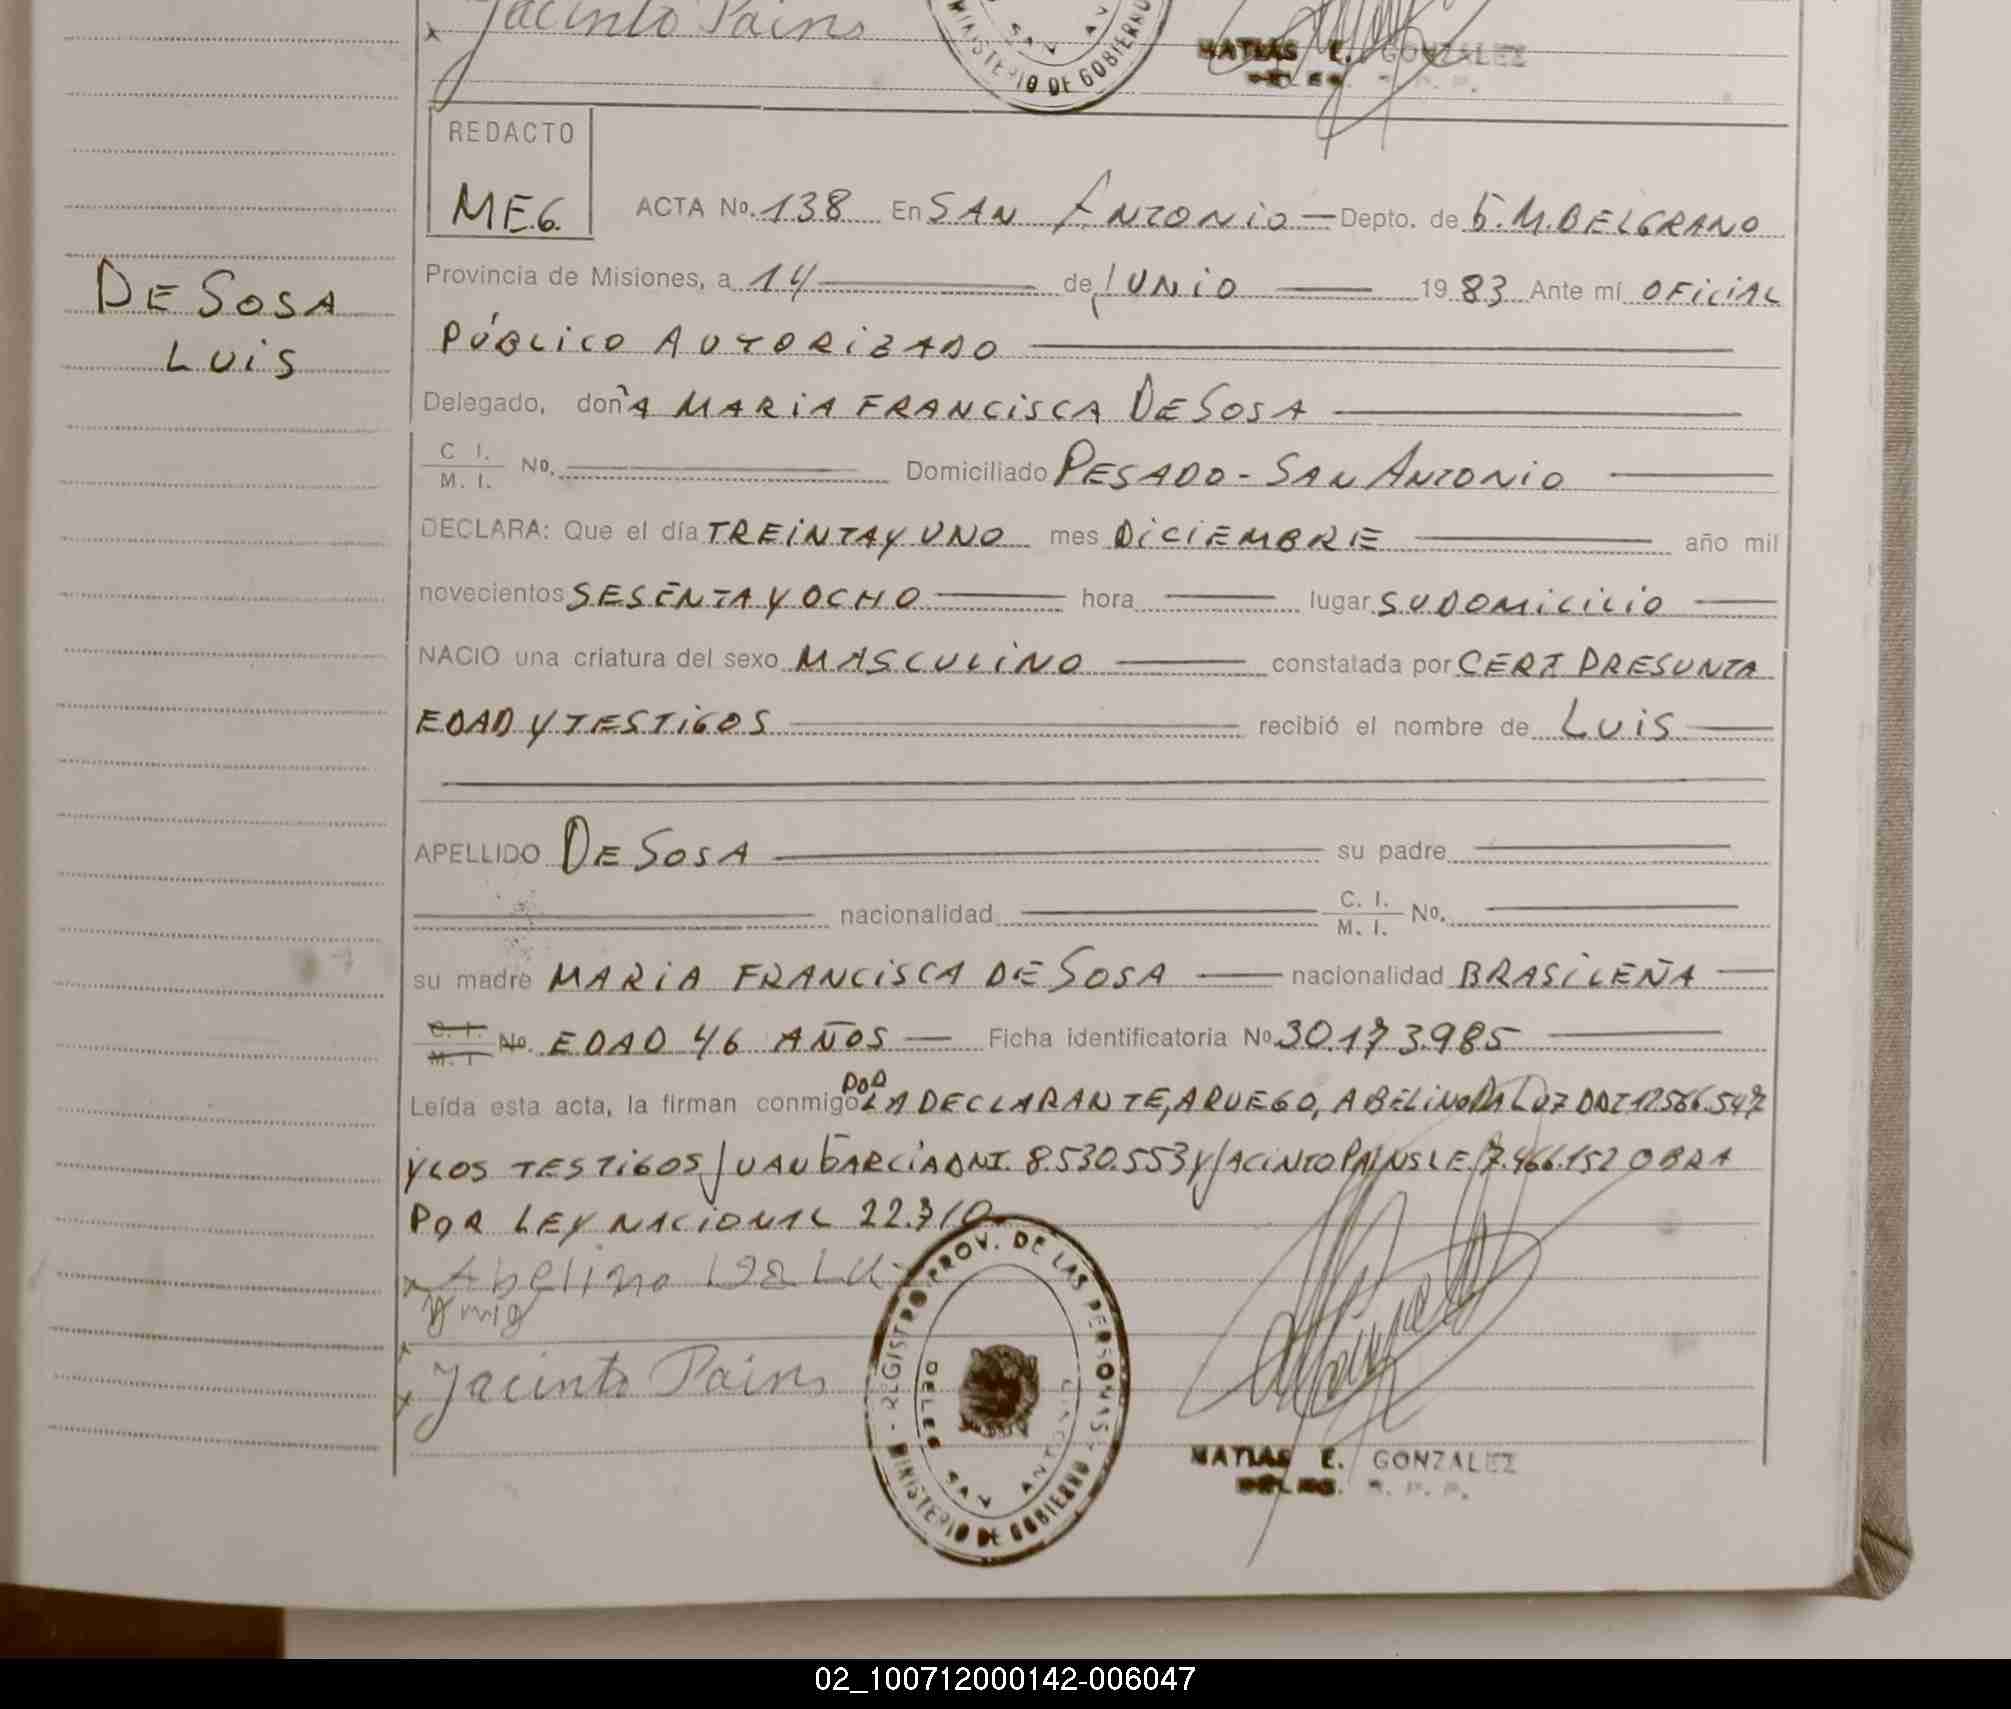 Jacinto Pains
MINISTERIO DE GOBIERNO
MATIAS E. GONZALEZ
REDACTO
MEG.
ACTA No. 138 En SAN ANTONIO — Depto. de G. M. BELGRANO
Provincia de Misiones, a 14 de JUNIO 1983 Ante mí OFICIAL
PÚBLICO AUTORIZADO
DE SOSA
LUIS
Delegado, doñA MARIA FRANCISCA DE SOSA
C. I.
M. I. No. Domiciliado PESADO - SAN ANTONIO
DECLARA: Que el día TREINTA Y UNO mes DICIEMBRE año mil
novecientos SESENTA Y OCHO hora lugar SU DOMICILIO
NACIO una criatura del sexo MASCULINO constatada por CERT PRESUNTA
EDAD Y TESTIGOS recibió el nombre de LUIS
APELLIDO DE SOSA su padre
nacionalidad C. I. M. I. No.
su madre MARIA FRANCISCA DE SOSA nacionalidad BRASILEÑA
C. I. M. I No. EDAD 46 AÑOS — Ficha identificatoria No 30.173.985
Leída esta acta, la firman conmigo POR LA DECLARANTE, A RUEGO, ABELINO DA LUZ DNI 12566.547
Y LOS TESTIGOS JUAN GARCIA DNI. 8.530.553 Y JACINTO PAINS L E. 7.466.152 OBRA
POR LEY NACIONAL 22.310
Abelino Da Lu
Jacinto Pains
REGISTRO PROV. DE LAS PERSONAS - MINISTERIO DE GOBIERNO
DELEG SAN ANTONIO
MATIAS E. GONZALEZ
DELEG. R. P. P.
02_100712000142-006047